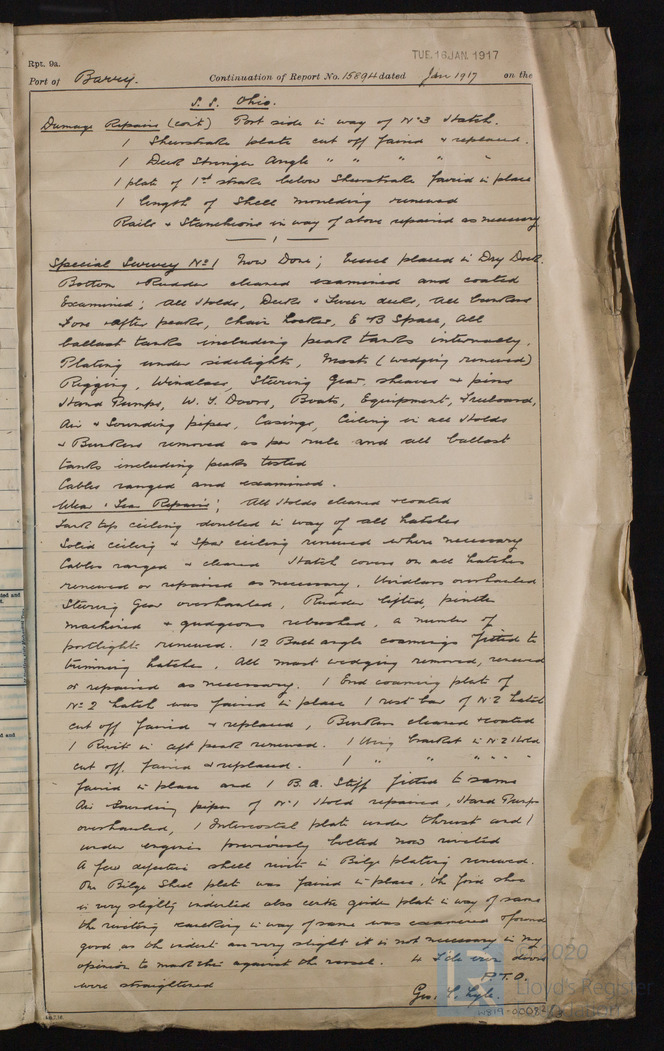 TUE. 16 JAN. 1917
Rpt. 9a.
Port of Barry. Continuation of Report No. 15894 dated Jan 1917 on the
S. S. Ohio.
Damage Repairs (con't) Port side in way of No 3 Hatch.
1 Sheerstrake plate cut off faired & replaced.
1 Deck Stringer Angle " " " "
1 plate of 1st strake below Sheerstrake faired in place
1 length of Shell moulding renewed
Rails & Stanchions in way of above repaired as necessary
Special Survey No 1 Now Done; Vessel placed in Dry Dock.
Bottom & Rudder cleaned examined and coated
Examined; All Holds, Decks & Tween decks, All bunkers
Fore & after peaks, Chain Locker, E & B Space, All
ballast tanks including peak tanks internally.
Plating under sidelights, Masts (wedging renewed)
Rigging, Windlass, Steering Gear, sheaves & pins
Hand Pumps, W. T. Doors, Boats, Equipment, Freeboard,
Air & Sounding pipes, Casings, Ceiling in all Holds
& Bunkers removed as per rule and all ballast
tanks including peaks tested
Cables ranged and examined.
Wear & Tear Repairs; All Holds cleaned & coated
Tank top ceiling doubled in way of all hatches
Solid ceiling & Spar ceiling renewed where necessary
Cables ranged & cleaned Hatch covers on all hatches
renewed or repaired as necessary. Windlass overhauled
Steering Gear overhauled, Rudder lifted, pintles
machined & gudgeons rebushed, a number of
portlights renewed. 12 Bulb angle coamings fitted to
trimming hatches. All mast wedging removed, renewed
or repaired as necessary. 1 End coaming plate of
No 2 hatch was faired in place 1 rest bar of No 2 hatch
cut off faired & replaced, Bunkers cleaned & coated
1 Rivet in aft peak renewed. 1 Wing bracket in No 2 Hold
cut off. faired & replaced. 1 " " " " " "
faired in place and 1 B. A. Stiff fitted to same
Air Sounding pipes of No 1 Hold repaired, Hand Pumps
overhauled, 1 Intercostal plate under thrust and 1
under engines previously bolted now riveted
A few defective shell rivets in Bilge plating renewed.
One Bilge Shell plate was faired in place, the
is very slightly indented also centre girder plate in way of same
the riveting caulking in way of same was examined & found
good as the indent are very slight it is not necessary in my
opinion to mark this against the vessel. 4 Side doors
were straightened P.T.O.
© 2020
Lloyd's Register
Foundation